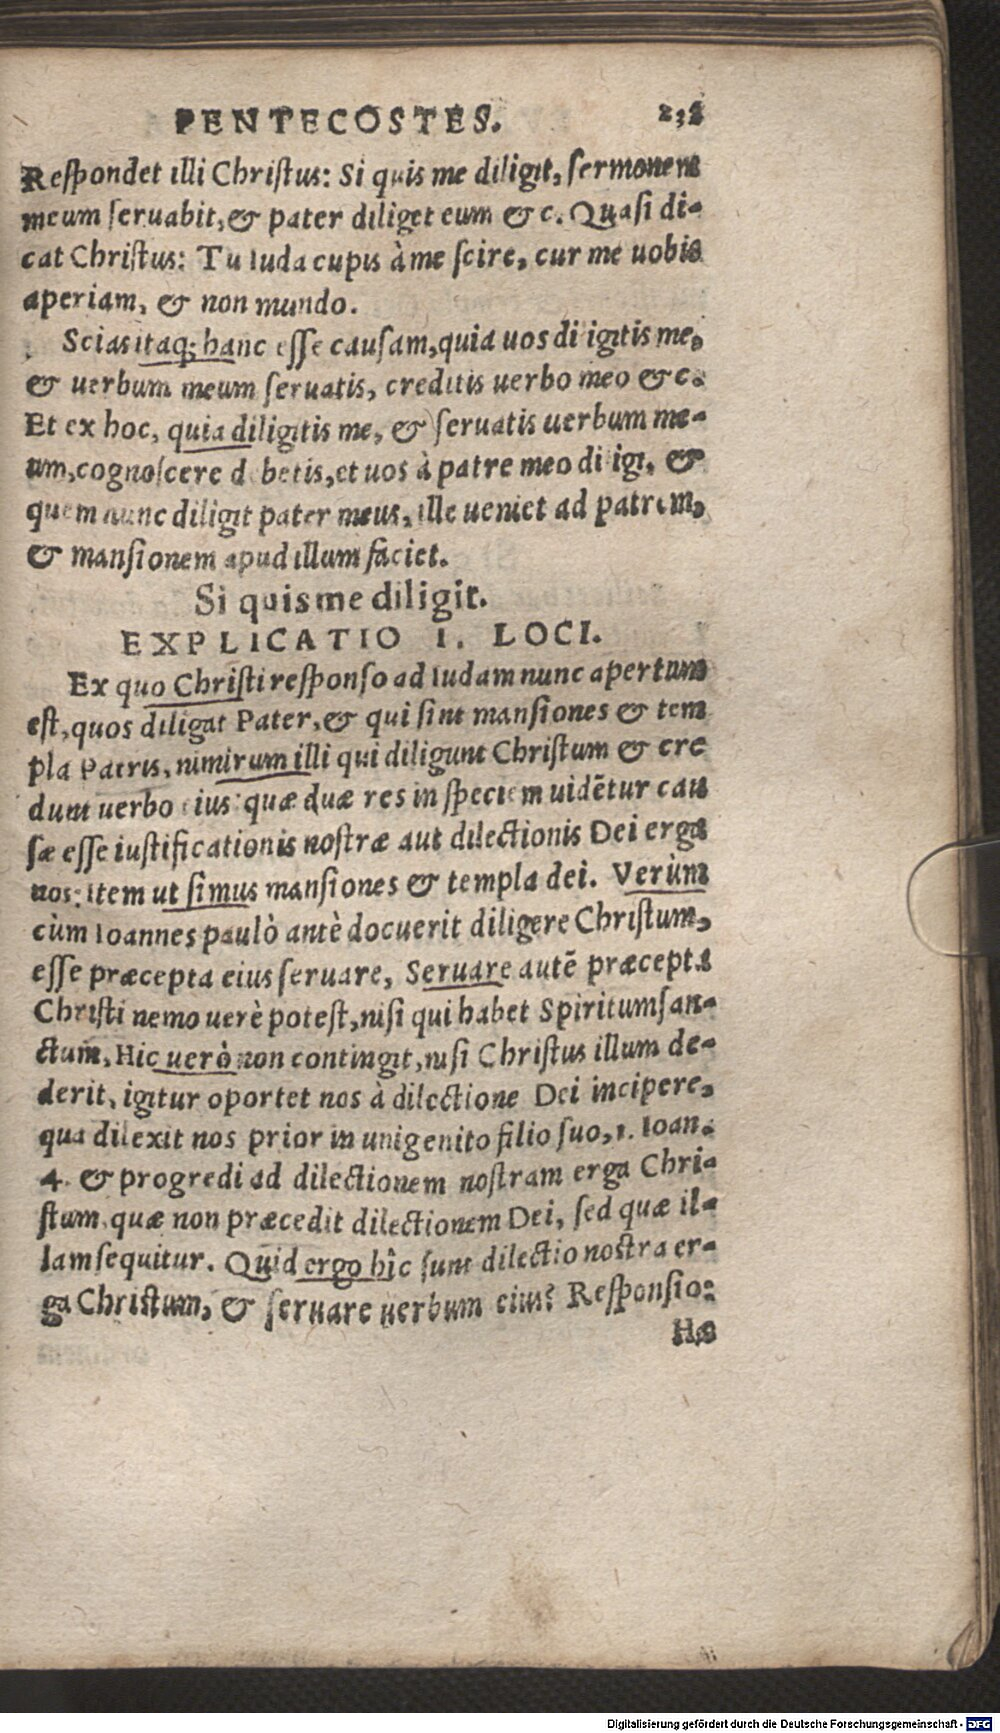 PENTECOSTES.
Respondet illi Christus: Si quis me diligit, sermonem
meum seruabit, & pater diliget eum & c. Quasi di-
cat Christus: Tu Iuda cupis à me scire, cur me uobis
aperiam, & non mundo.
Scias itaq; hanc esse causam, quia uos diligitis me,
& uerbum meum seruatis, creditis uerbo meo & c.
Et ex hoc, quia diligitis me, & seruatis uerbum me-
um, cognoscere debetis, et uos à patre meo diligi, &
quem nunc diligit pater meus, ille ueniet ad patrem,
& mansionem apud illum faciet.
Si quis me diligit.
EXPLICATIO I. LOCI.
Ex quo Christi responso ad Iudam nunc apertum
est, quos diligat Pater, & qui sint mansiones & tem
pla Patris, nimirum illi qui diligunt Christum & cre
dunt uerbo eius: quæ duæ res in speciem uidētur cau
sæ esse iustificationis nostræ aut dilectionis Dei erga
nos: item ut simus mansiones & templa dei. Verùm
cùm Ioannes paulò antè docuerit diligere Christum,
esse præcepta eius seruare, Seruare autē præcepta
Christi nemo uerè potest, nisi qui habet Spiritum san-
ctum, Hic uerò non contingit, nisi Christus illum de-
derit, igitur oportet nos à dilectione Dei incipere,
qua dilexit nos prior in unigenito filio suo, 1. Ioan.
4. & progredi ad dilectionem nostram erga Chri-
stum, quæ non præcedit dilectionem Dei, sed quæ il-
lam sequitur. Quid ergo hîc sunt dilectio nostra er-
ga Christum, & seruare uerbum eius? Responsio:
Hæ
Digitalisierung gefördert durch die Deutsche Forschungsgemeinschaft - DFG